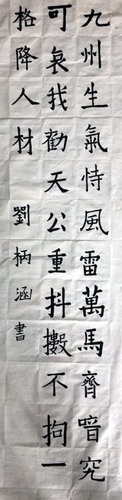 九州生氣恃風雷萬馬齊喑究
可哀我勸天公重抖擻不拘一
格降人材 劉柄涵書